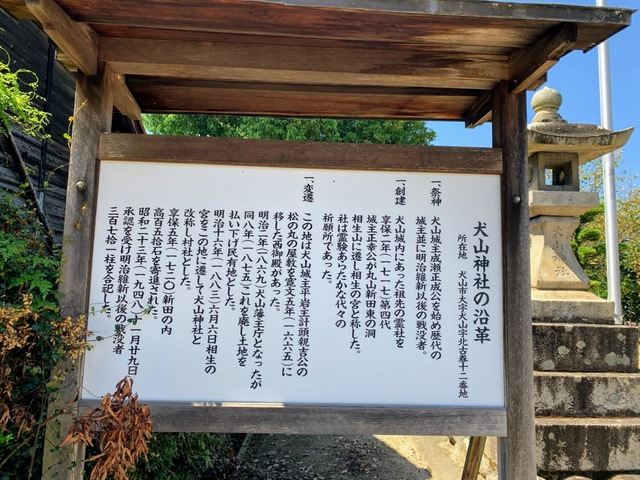 犬山神社の沿革
所在地 犬山市大字犬山字北古券十二番地
一、祭神 犬山城主成瀬正成公を始め歴代の
城主並に明治維新以後の戦没者。
一、創建 犬山城内にあった祖先の霊社を
享保二年(一七一七)第四代
城主正幸公が丸山新田東の洞
相生山に遷し相生の宮と称した。
社は霊験あらたかな代々の
祈願所であった。
一、変遷 この地は犬山城主平岩主計頭親吉公の
松の丸の屋敷を寛文五年(一六六五)に
移した西御殿があった。
明治二年(一八六九)犬山藩主庁となったが
同八年(一八七五)これを廃し土地を
払い下げ民有地とした。
明治十六年(一八八三)六月六日相生の
宮をこの地に遷して犬山神社と
改称し村社とした。
享保五年(一七二〇)新田の内
高百五拾石を寄進された。
昭和二十三年(一九四八)十一月廿九日
承認を受け明治維新以後の戦没者
三百七拾一柱を合祀した。